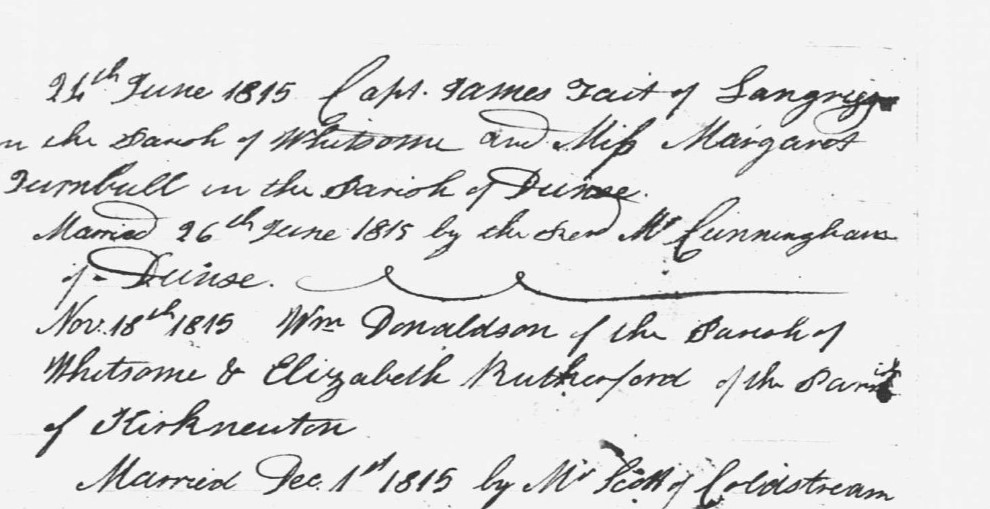 24th June 1815 Capt. James Tait of Langrigg
in the Parish of Whitsome and Miss Margaret
Turnbull in the Parish of Dunse.
Married 26th June 1815 by the Revd Mr Cunningham
of Dunse.
Nov. 18th 1815 Wm Donaldson of the Parish of
Whitsome & Elizabeth Rutherford of the Parish
of Kirknewton
Married Dec. 1st 1815 by Mr Scott of Coldstream